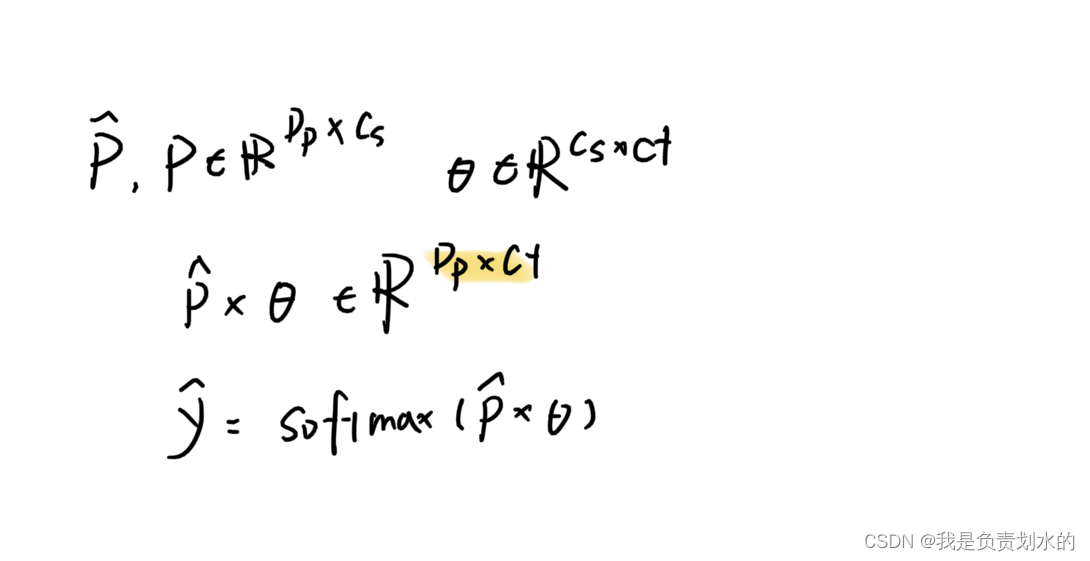 P̂, P ∈ ℝ^{D_p × C_s} θ ∈ ℝ^{C_s × C_t}
P̂ × θ ∈ ℝ^{D_p × C_t}
ŷ = softmax (P̂ × θ)
CSDN @我是负责划水的